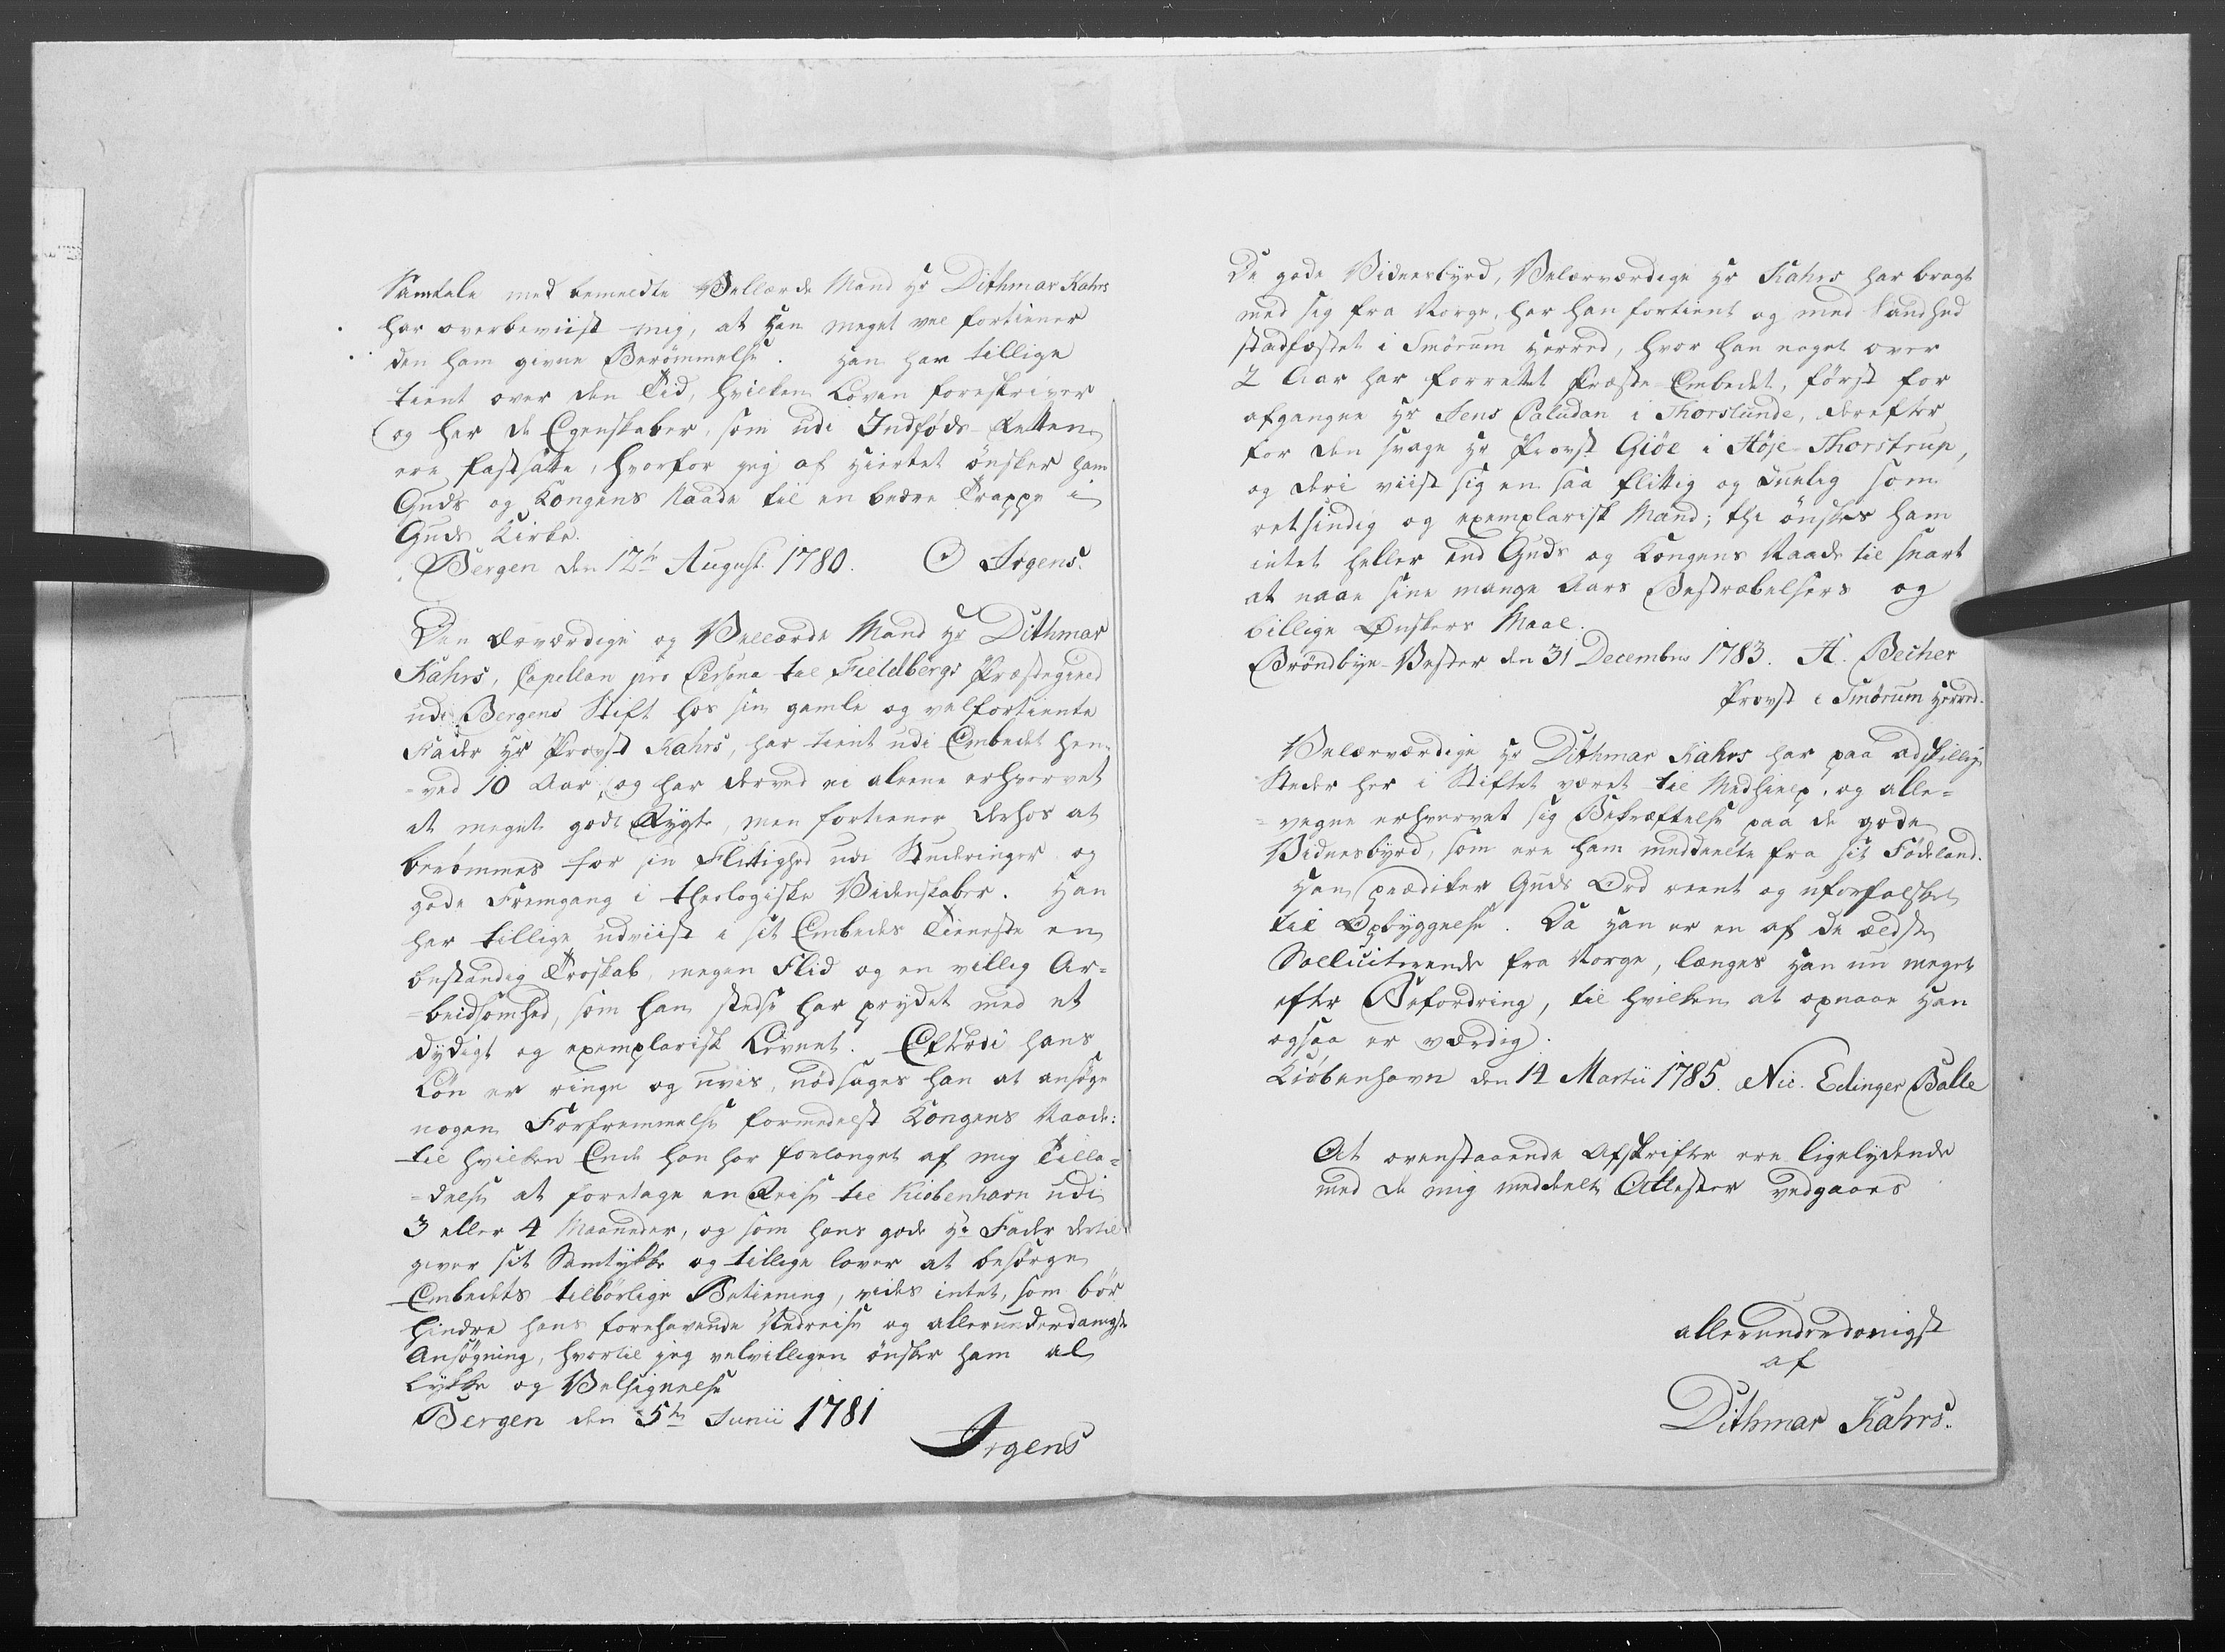 Samtale med bemeldte Vellærde Mand Hr Dithmar Kahrs
har overbeviist mig, at han meget vel fortiener
den ham givne Berömmelse. Han har tillige
tient over den Tid, hvilken Loven foreskriver
og har de Egenskaber, som udi Indföds-Retten
ere fastsatte, hvorfor jeg af Hiertet önsker ham
Guds og Kongens Naade til en bedre Trappe i
Guds Kirke.
Bergen den 12te August 1780. O Irgens.
Den Ærværdige og Vellærde Mand Hr Dithmar
Kahrs, Capellan pro Persona til Fieldbergs Præstegield
udi Bergens Stift hos sin gamle og velfortiente
Fader Hr Provst Kahrs, har tient udi Embedet hen-
=ved 10 Aar, og har derved ei aleene erhvervet
et meget godt Rygte, men fortiener derhos at
berömmes for sin Flittighed udi Studeringer og
gode Fremgang i theologiske Videnskaber. Han
har tillige udviist i sit Embedes Tieneste en
bestandig Troskab, megen Flid og en villig Ar=
=beidsomhed, som han stedse har prydet med et
dydigt og exemplarisk Levnet. Efterdi hans
Lön er ringe og uvis, nödsages han at ansöge
nogen Forfremmelse formedelst Kongens Naade:
til hvilken Ende han har forlanget af mig Tilla=
=delse at foretage en Reise til Kiöbenhavn udi
3 eller 4 Maaneder, og som hans gode Hr Fader dertil
giver sit Samtykke og tillige lover at besörge
Embedets tilbörlige Betiening, vides intet, som bör
hindre hans forehavende Nedreise og allerunderdanigste
Ansögning, hvortil jeg velvilligen önsker ham al
Lykke og Velsignelse
Bergen den 5te Junii 1781
Irgens
De gode Vidnesbyrd, Velærværdige Hr Kahrs har bragt
med sig fra Norge, har han fortient og med Sandhed
stadfæstet i Smörum Herred, hvor han noget over
2 Aar har forrettet Præste-Embedet, först for
afgangne Hr Jens Paludan i Thorslunde, derefter
for den svage Hr Provst Giöe i Höje-Thorstrup,
og deri viist sig en saa flittig og duelig som
retsindig og exemplarisk Mand; thi önskes ham
intet heller end Guds og Kongens Naade til snart
at naae sine mange Aars Bestræbelsers og
billige Önskers Maal.
Bröndbye-Vester den 31 December 1783. H. Becher
Provst i Smörum Herred.
Velærværdige Hr Dithmar Kahrs har paa adskillige
Steder her i Stiftet været til Medhielp, og alle=
=vegne erhvervet sig Bekræftelse paa de gode
Vidnesbyrd, som ere ham meddeelte fra sit Födeland.
Han prædiker Guds Ord reent og uforfalsket
til Opbyggelse. Da han er en af de ældste
Solliciterende fra Norge, længes han nu meget
efter Befordring, til hvilken at opnaae han
ogsaa er værdig.
Kiöbenhavn den 14 Martii 1785. Nic. Edinger Balle
At ovenstaaende Afskrifter ere ligelydende
med de mig meddeelte Attester vedgaaes
allerunderdanigst
af
Dithmar Kahrs.